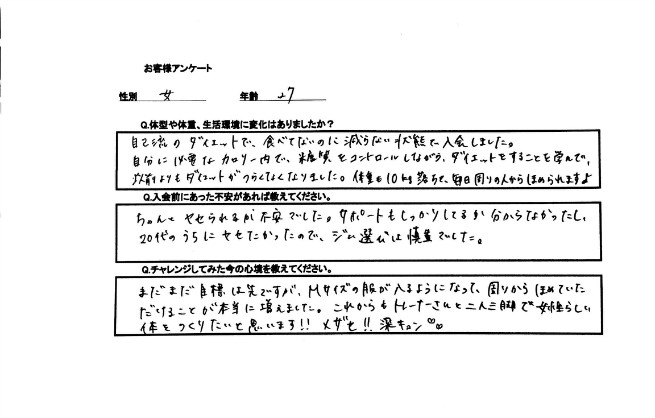 お客様アンケート
性別 女 年齢 27
Q.体型や体重、生活環境に変化はありましたか?
自己流のダイエットで、食べてないのに減らない状態で入会しました。
自分に必要なカロリー内で、糖質をコントロールしながら、ダイエットをすることを学んで、
以前よりもダイエットがつらくなくなりました。体重も10kg落ちて、毎日周りの人からほめられますよ
Q.入会前にあった不安があれば教えてください。
ちゃんとヤセられるか不安でした。サポートもしっかりしてるか分からなかったし、
20代のうちにヤセたかったので、ジム選びは慎重でした。
Q.チャレンジしてみた今の心境を教えてください。
まだまだ目標は先ですが、Mサイズの服が入るようになって、周りからほめていた
だけることが本当に増えました。これからもトレーナーさんと二人三脚で女性らしい
体をつくりたいと思います!! メザせ!! 深キョン♡♡